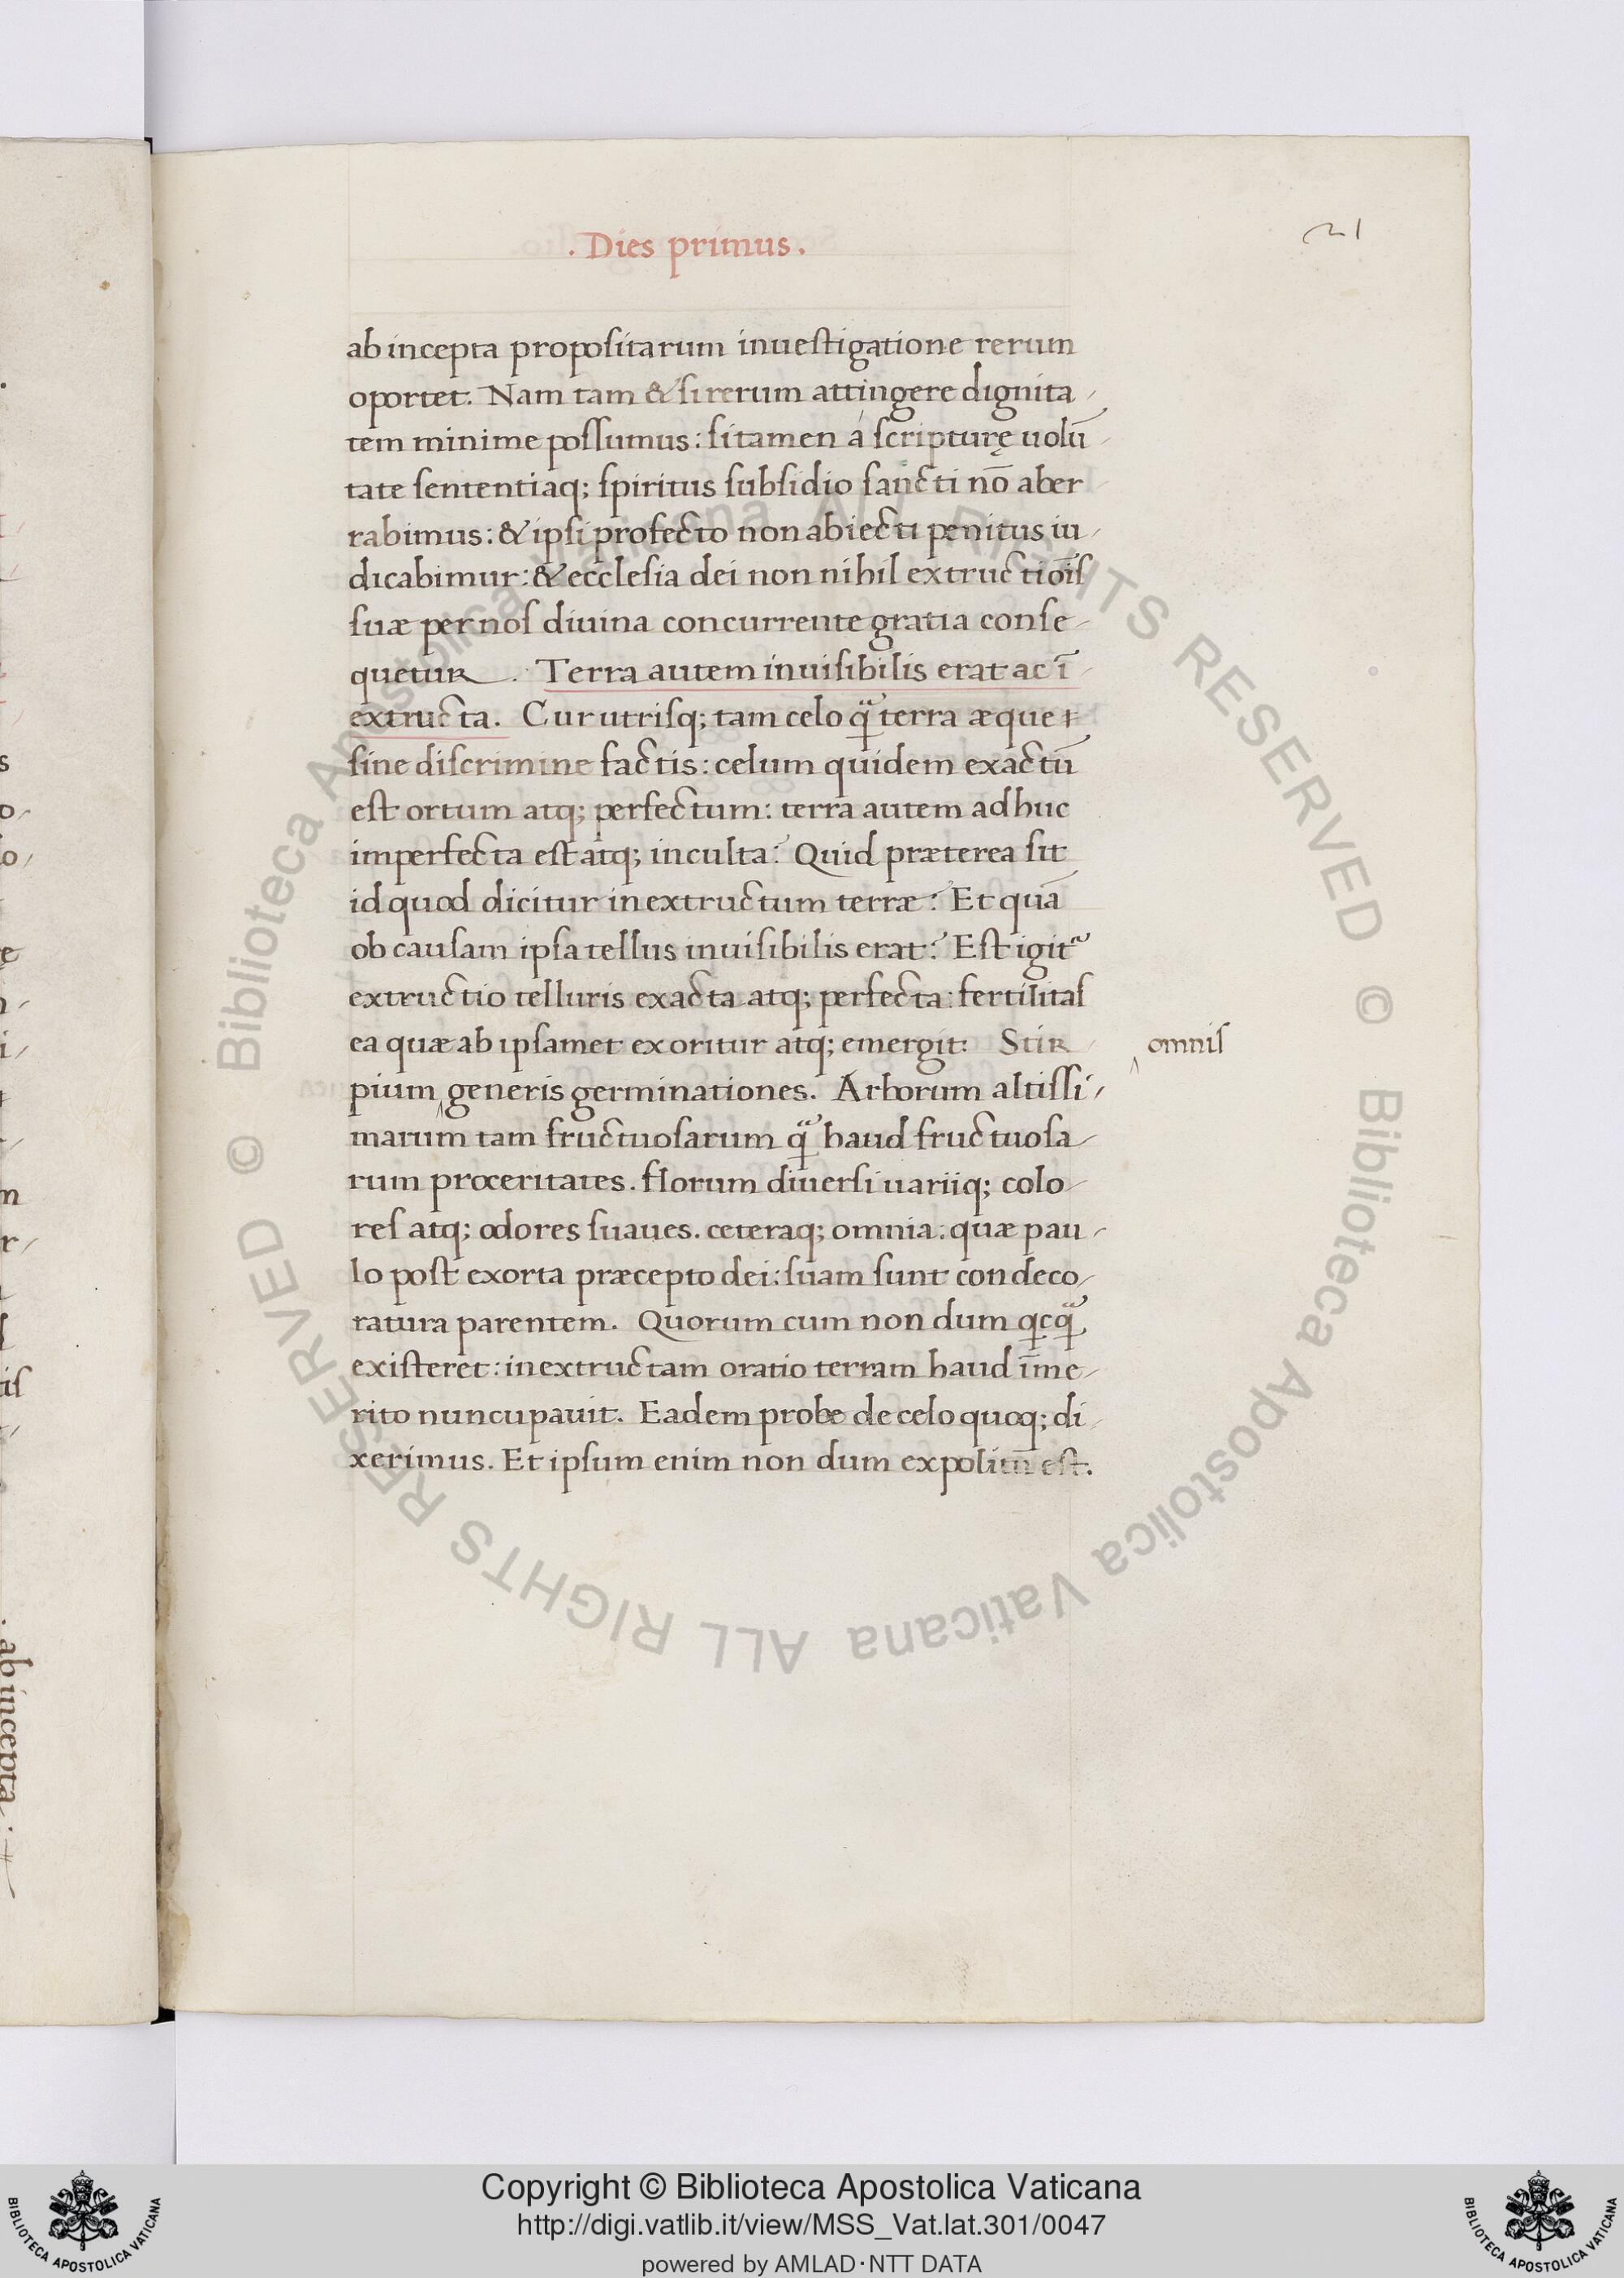 . Dies primus .
21
ab incepta propositarum inuestigatione rerum
oportet. Nam tam & si rerum attingere dignita-
tem minime possumus: si tamen a scripturę uolū-
tate sententiaq; spiritus subsidio sancti nō aber-
rabimus: & ipsi profecto non abiecti penitus iu-
dicabimur: & ecclesia dei non nihil extructiōis
suæ per nos diuina concurrente gratia conse-
quetur. Terra autem inuisibilis erat ac ī-
extructa. Cur utrisq; tam celo q̃ terra æque
sine discrimine factis: celum quidem exactū
est ortum atq; perfectum: terra autem adhuc
imperfecta est atq; inculta? Quid præterea sit
id quod dicitur inextructum terræ? Et quā
ob causam ipsa tellus inuisibilis erat? Est igit᷑
extructio telluris exacta atq; perfecta: fertilitas
ea quæ ab ipsamet exoritur atq; emergit: Stir-
‸ omnis
pium ‸ generis germinationes. Arborum altissi-
marum tam fructuosarum q̃ haud fructuosa-
rum proceritates. florum diuersi uariiq; colo-
res atq; odores suaues. ceteraq; omnia: quæ pau-
lo post exorta præcepto dei: suam sunt condeco-
ratura parentem. Quorum cum non dum qcq̃
existeret: inextructam oratio terram haud īme-
rito nuncupauit. Eadem probe de celo quoq; di-
xerimus. Et ipsum enim non dum expolitū est.
s
o-
o/
ę
i/
m
r/
is
. ab incepta :
© Biblioteca Apostolica Vaticana ALL RIGHTS RESERVED © Biblioteca Apostolica Vaticana ALL RIGHTS RESERVED
BIBLIOTECA APOSTOLICA VATICANA
Copyright © Biblioteca Apostolica Vaticana
http://digi.vatlib.it/view/MSS_Vat.lat.301/0047
powered by AMLAD·NTT DATA
BIBLIOTECA APOSTOLICA VATICANA